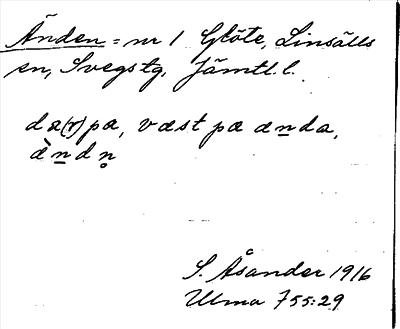 Änden = nr 1 Glöte, Linsälls
sn, Svegs tg. Jämtl. l.
da(r)pa, væst pa æṉda,
æ̀ṉdn̥
S. Åsander 1916
Ulma 755:29